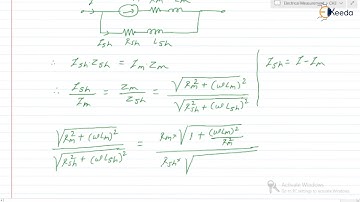 Electrical Measurement
Ekeeda
Rm Lm
Ish Rsh Lsh
∴ Ish Zsh = Im Zm
Ish = I - Im
∴ Ish/Im = Zm/Zsh = √(Rm² + (ωLm)²) / √(Rsh² + (ωLsh)²)
√(Rm² + (ωLm)²) / √(Rsh² + (ωLsh)²) = Rm × √(1 + (ωLm)²/Rm²) / Rsh × √
Activate Windows
Go to PC settings to activate Windows.